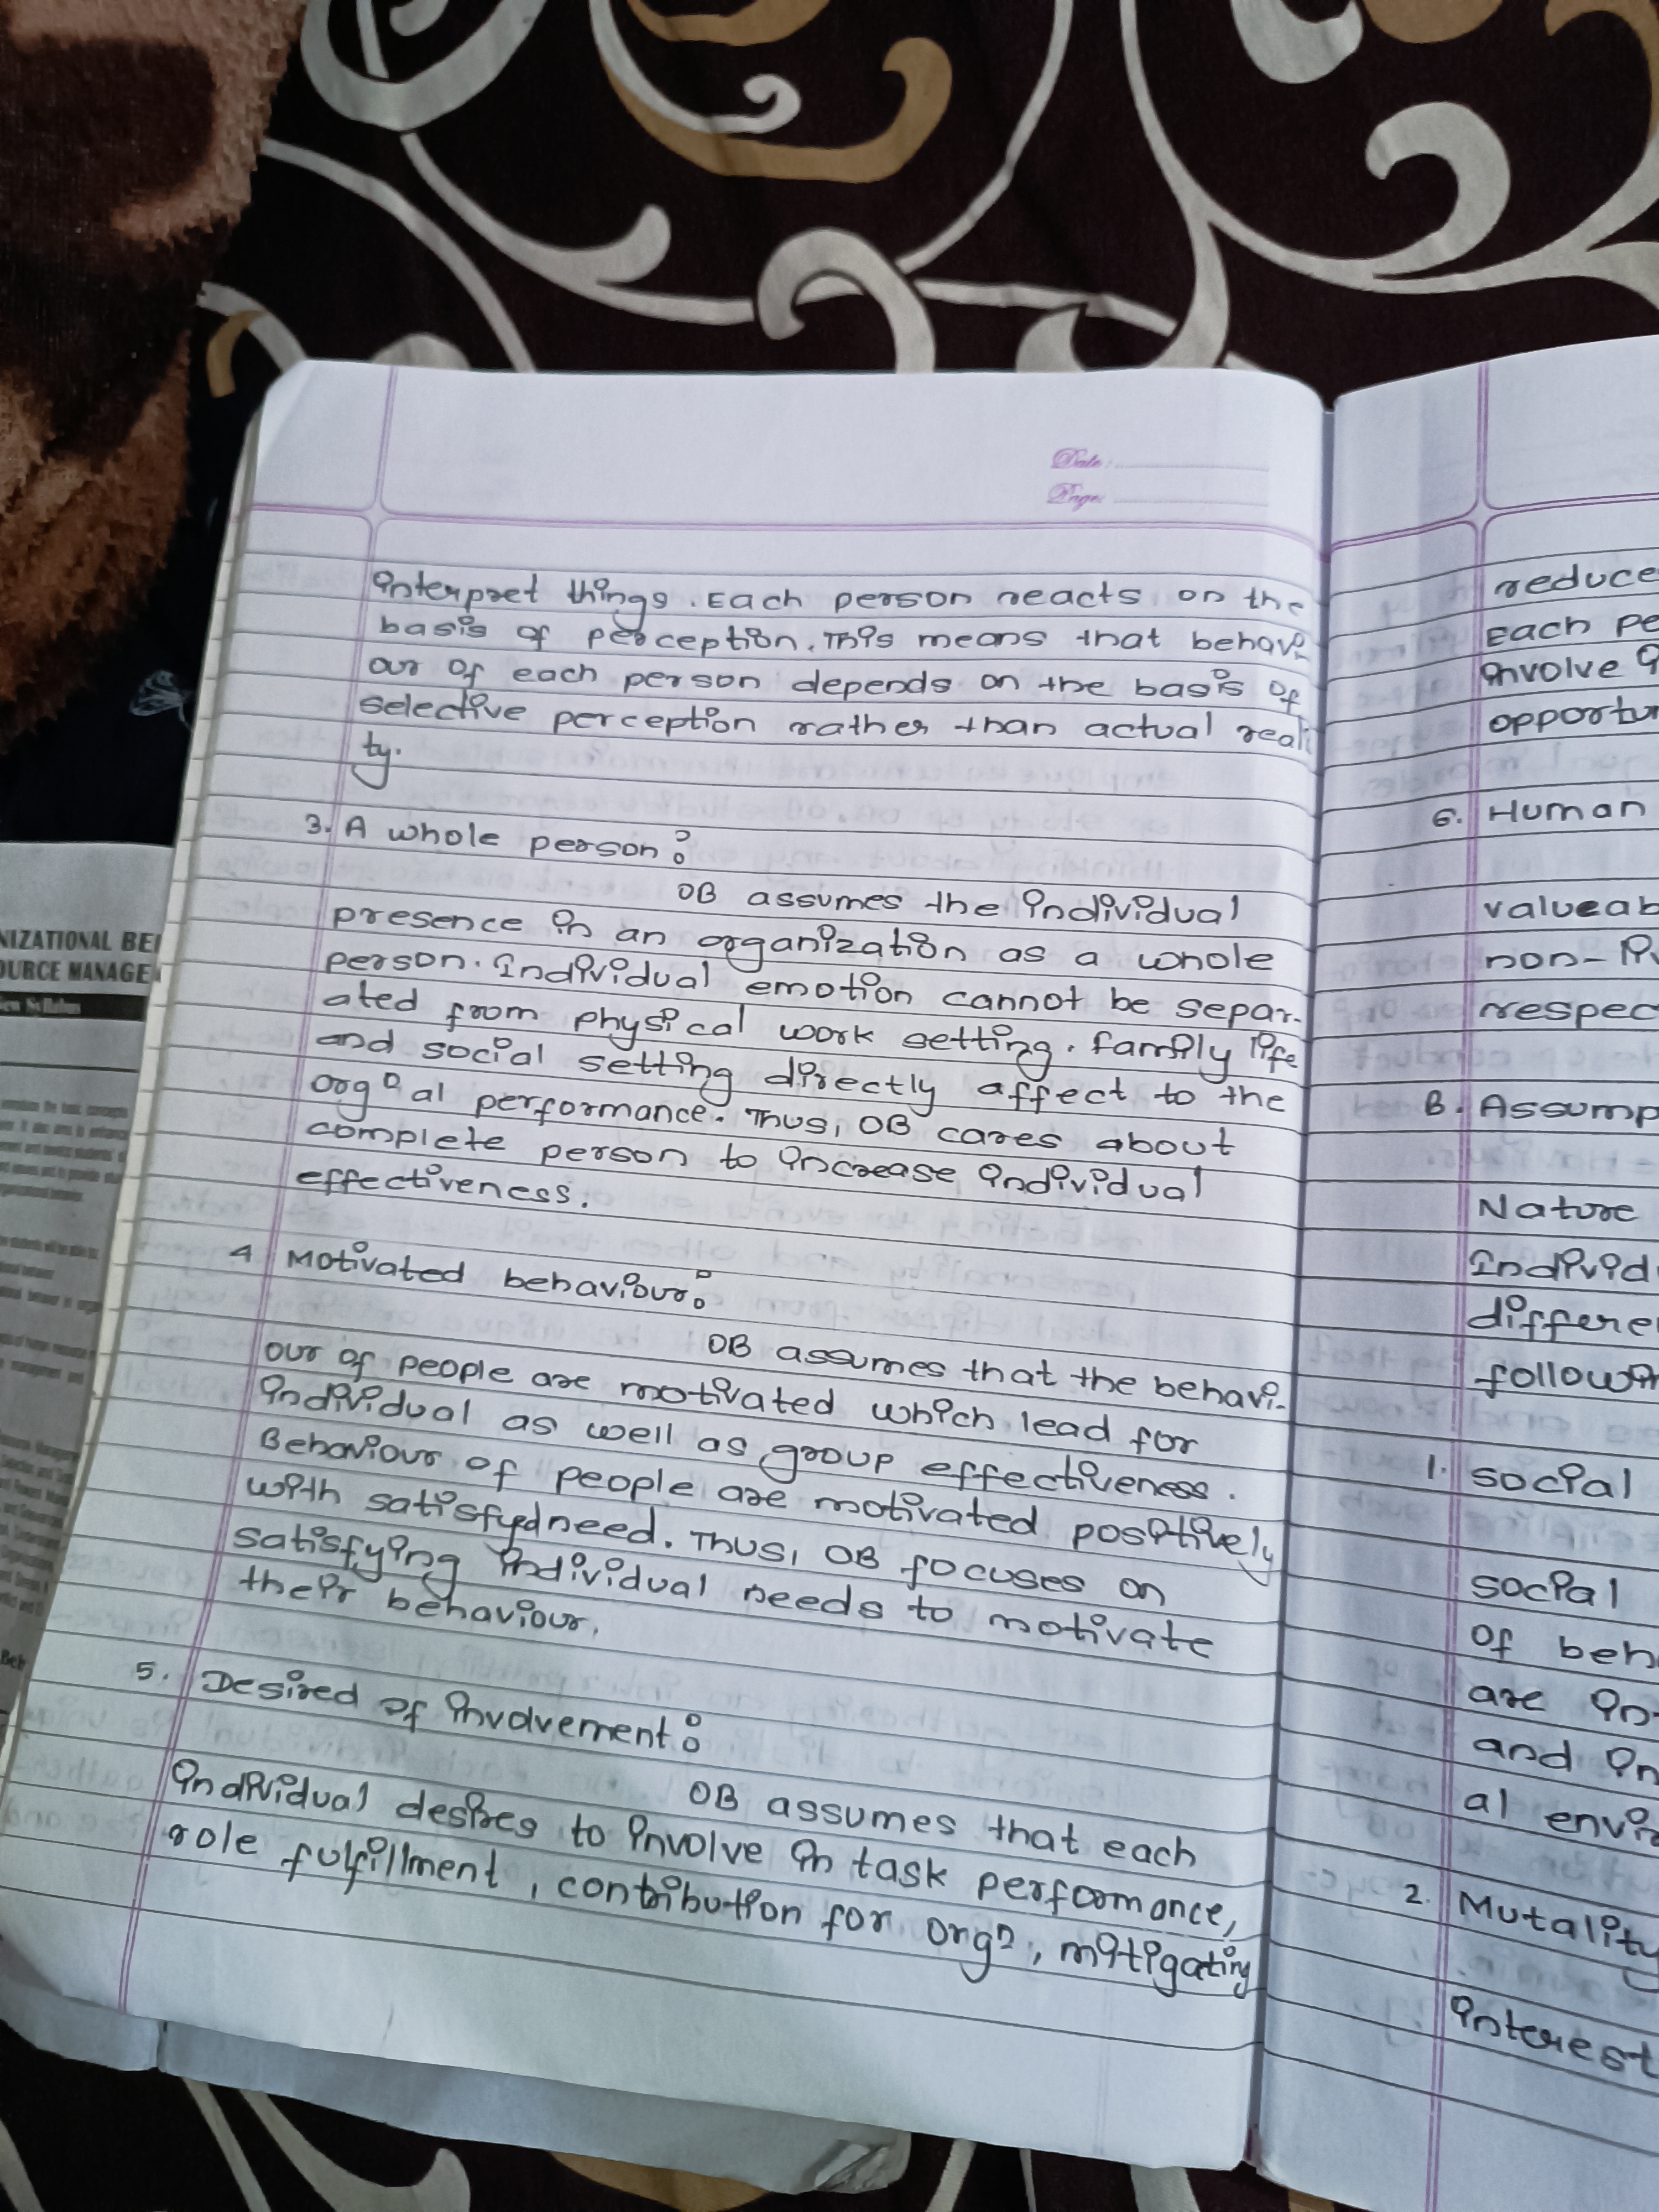 Date:
Page:
interpret things. Each person reacts on the
basis of perception. This means that behavi-
our of each person depends on the basis of
selective perception rather than actual reali
ty.
3. A whole person:
OB assumes the individual
presence in an organization as a whole
person. Individual emotion cannot be separ-
ated from physical work setting. family life
and social setting directly affect to the
orgⁿal performance. Thus, OB cares about
complete person to increase individual
effectiveness.
4 Motivated behaviour:
OB assumes that the behavi-
our of people are motivated which lead for
individual as well as group effectiveness.
Behaviour of people are motivated positively
with satisfyed need. Thus, OB focuses on
satisfying individual needs to motivate
their behaviour.
5. Desired of involvement:
OB assumes that each
individual desires to involve in task performance,
role fulfillment, contribution for orgⁿ, mitigating
reduce
Each pe
involve
opportu
6. Human
valueab
non-
respec
B. Assump
Nature
Individ
differe
followin
1. social
social
of beh
are in
and in
al envir
2. Mutality
interest
NIZATIONAL BE
OURCE MANAGE